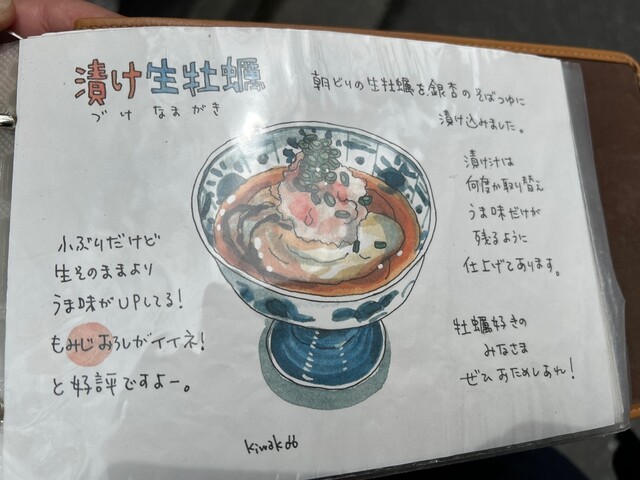 漬け生牡蠣
づけ なまがき
朝どりの生牡蠣を銀杏のそばつゆに
漬け込みました。
漬け汁は
何度か取り替え
うま味だけが
残るように
仕上げてあります。
小ぶりだけど
生そのままより
うま味がUPしてる!
もみじおろしがイイネ!
と好評ですよー。
牡蠣好きの
みなさま
ぜひおためしあれ!